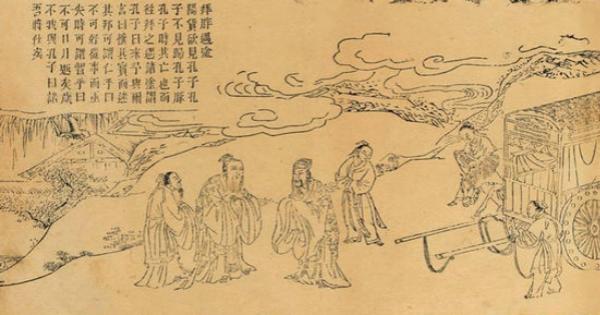 拜胙遇塗
陽貨欲見孔子孔
子不見歸孔子豚
孔子時其亡也而
往拜之遇諸塗謂
孔子曰來予與爾
言曰懷其寶而迷
其邦可謂仁乎曰
不可好從事而亟
失時可謂智乎曰
不可日月逝矣歲
不我與孔子曰諾
吾將仕矣